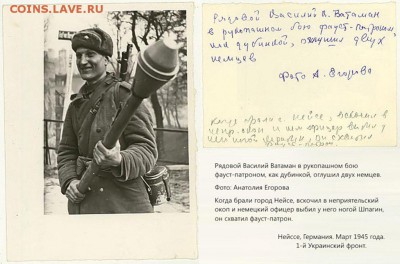 COINS.LAVE.RU
Рядовой Василий В. Ватаман
в рукопашном бою фауст-патроном,
как дубинкой, оглушил двух
немцев
Фото А. Егорова
Когда брали г. Нейсе, вскочил в
офицер выбил у
него ногой
он схватил
фауст-патрон
Рядовой Василий Ватаман в рукопашном бою
фауст-патроном, как дубинкой, оглушил двух немцев.
Фото: Анатолия Егорова
Когда брали город Нейсе, вскочил в неприятельский
окоп и немецкий офицер выбил у него ногой Шпагин,
он схватил фауст-патрон.
Нейссе, Германия. Март 1945 года.
1-й Украинский фронт.